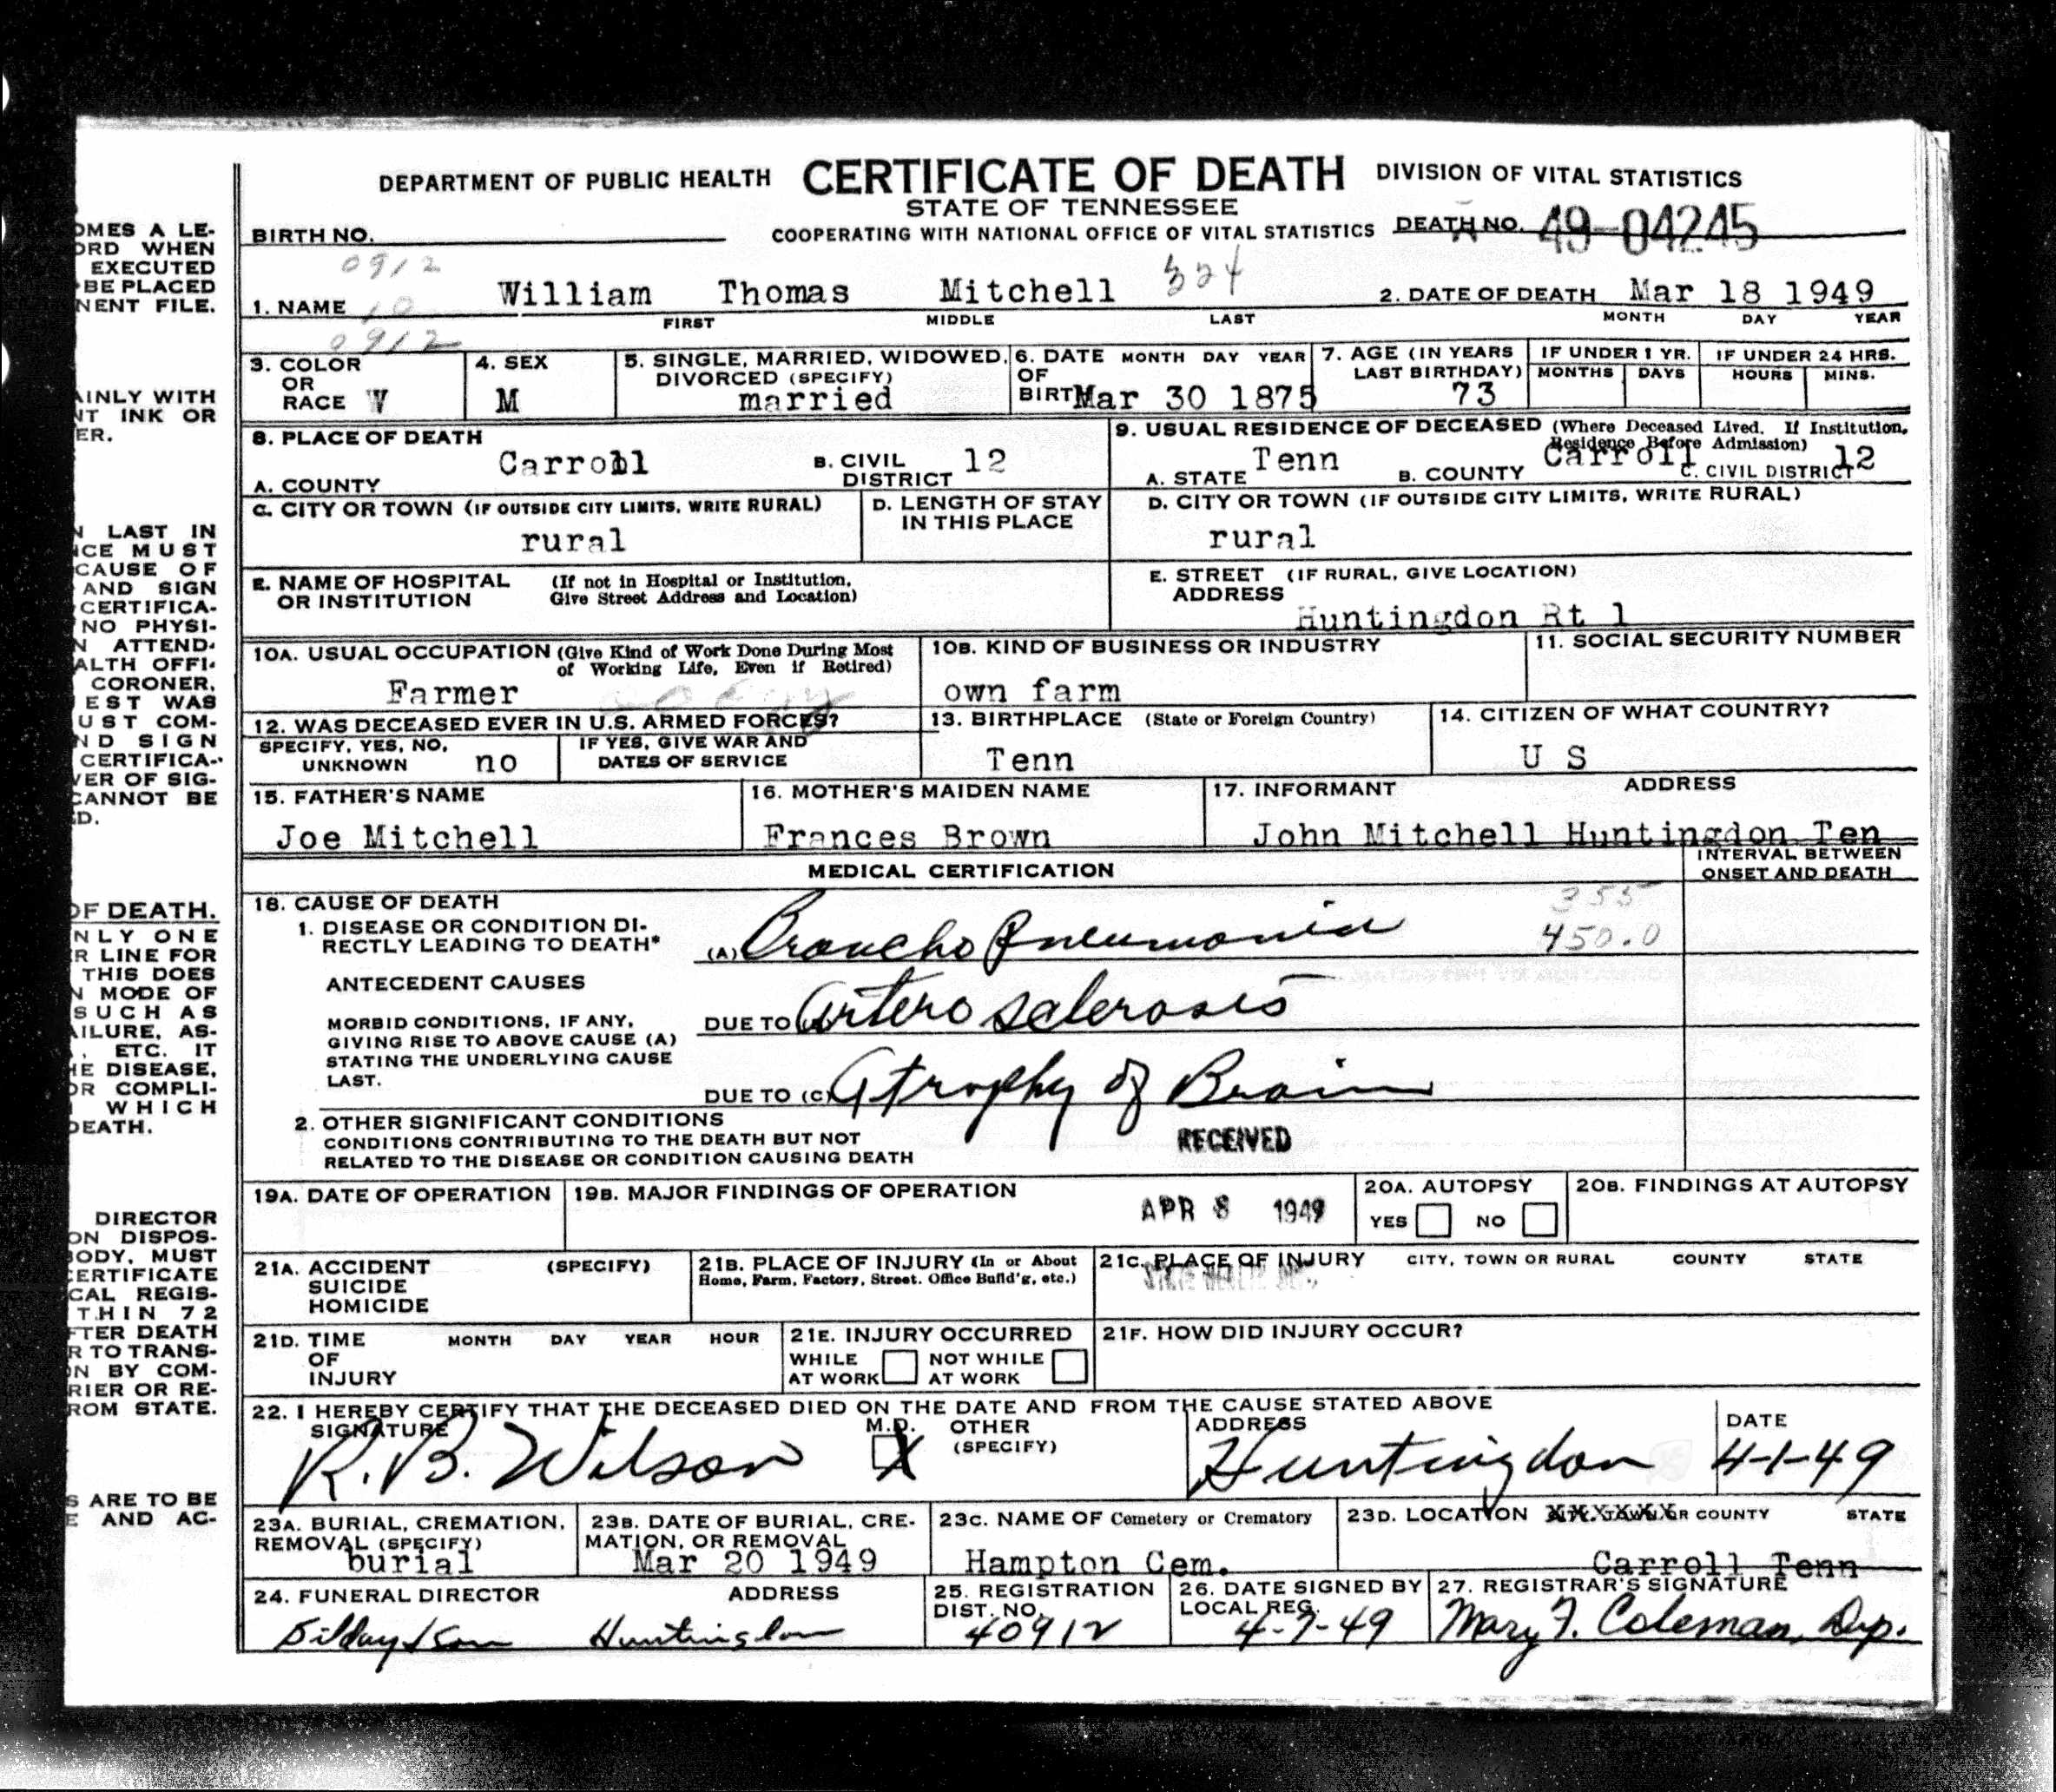 DEPARTMENT OF PUBLIC HEALTH CERTIFICATE OF DEATH DIVISION OF VITAL STATISTICS
STATE OF TENNESSEE
BIRTH NO. COOPERATING WITH NATIONAL OFFICE OF VITAL STATISTICS DEATH NO. 49-04245
0912
1. NAME 10 William Thomas Mitchell 324 2. DATE OF DEATH Mar 18 1949
FIRST MIDDLE LAST MONTH DAY YEAR
0912
3. COLOR OR RACE W 4. SEX M 5. SINGLE, MARRIED, WIDOWED, DIVORCED (SPECIFY) married 6. DATE OF BIRT MONTH DAY YEAR Mar 30 1875 7. AGE (IN YEARS LAST BIRTHDAY) 73 IF UNDER 1 YR. MONTHS DAYS IF UNDER 24 HRS. HOURS MINS.
8. PLACE OF DEATH
A. COUNTY Carroll B. CIVIL DISTRICT 12
9. USUAL RESIDENCE OF DECEASED (Where Deceased Lived. If Institution, Residence Before Admission)
A. STATE Tenn B. COUNTY Carroll C. CIVIL DISTRICT 12
C. CITY OR TOWN (IF OUTSIDE CITY LIMITS, WRITE RURAL) rural
D. LENGTH OF STAY IN THIS PLACE
D. CITY OR TOWN (IF OUTSIDE CITY LIMITS, WRITE RURAL) rural
E. NAME OF HOSPITAL OR INSTITUTION (If not in Hospital or Institution, Give Street Address and Location)
E. STREET ADDRESS (IF RURAL, GIVE LOCATION) Huntingdon Rt 1
10A. USUAL OCCUPATION (Give Kind of Work Done During Most of Working Life, Even if Retired) Farmer
10B. KIND OF BUSINESS OR INDUSTRY own farm
11. SOCIAL SECURITY NUMBER
12. WAS DECEASED EVER IN U.S. ARMED FORCES?
SPECIFY, YES, NO, UNKNOWN no IF YES, GIVE WAR AND DATES OF SERVICE
13. BIRTHPLACE (State or Foreign Country) Tenn
14. CITIZEN OF WHAT COUNTRY? U S
15. FATHER'S NAME Joe Mitchell
16. MOTHER'S MAIDEN NAME Frances Brown
17. INFORMANT ADDRESS John Mitchell Huntingdon Ten
MEDICAL CERTIFICATION
INTERVAL BETWEEN ONSET AND DEATH
18. CAUSE OF DEATH 355
1. DISEASE OR CONDITION DIRECTLY LEADING TO DEATH* (A) Broncho Pneumonia 450.0
ANTECEDENT CAUSES
MORBID CONDITIONS, IF ANY, GIVING RISE TO ABOVE CAUSE (A) STATING THE UNDERLYING CAUSE LAST.
DUE TO Artero sclerosis
DUE TO (C) Atrophy of Brain
2. OTHER SIGNIFICANT CONDITIONS
CONDITIONS CONTRIBUTING TO THE DEATH BUT NOT RELATED TO THE DISEASE OR CONDITION CAUSING DEATH
RECEIVED
APR 8 1949
STATE HEALTH DEPT.
19A. DATE OF OPERATION 19B. MAJOR FINDINGS OF OPERATION 20A. AUTOPSY YES NO 20B. FINDINGS AT AUTOPSY
21A. ACCIDENT SUICIDE HOMICIDE (SPECIFY)
21B. PLACE OF INJURY (In or About Home, Farm, Factory, Street, Office Build'g, etc.)
21C. PLACE OF INJURY CITY, TOWN OR RURAL COUNTY STATE
21D. TIME OF INJURY MONTH DAY YEAR HOUR
21E. INJURY OCCURRED WHILE AT WORK NOT WHILE AT WORK
21F. HOW DID INJURY OCCUR?
22. I HEREBY CERTIFY THAT THE DECEASED DIED ON THE DATE AND FROM THE CAUSE STATED ABOVE
SIGNATURE M.D. OTHER (SPECIFY) ADDRESS DATE
R. B. Wilson X Huntingdon 4-1-49
23A. BURIAL, CREMATION, REMOVAL (SPECIFY) burial
23B. DATE OF BURIAL, CREMATION, OR REMOVAL Mar 20 1949
23C. NAME OF Cemetery or Crematory Hampton Cem.
23D. LOCATION OR COUNTY STATE Carroll Tenn
24. FUNERAL DIRECTOR ADDRESS
Dilday & Son Huntingdon
25. REGISTRATION DIST. NO. 40912
26. DATE SIGNED BY LOCAL REG. 4-7-49
27. REGISTRAR'S SIGNATURE Mary F. Coleman, Dep.
OMES A LE-
ORD WHEN
EXECUTED
BE PLACED
NENT FILE.
AINLY WITH
NT INK OR
ER.
N LAST IN
NCE MUST
CAUSE OF
AND SIGN
CERTIFICA-
NO PHYSI-
N ATTEND-
ALTH OFFI-
CORONER,
EST WAS
UST COM-
ND SIGN
CERTIFICA-
VER OF SIG-
CANNOT BE
D.
OF DEATH.
NLY ONE
R LINE FOR
THIS DOES
N MODE OF
SUCH AS
AILURE, AS-
, ETC. IT
HE DISEASE,
OR COMPLI-
WHICH
DEATH.
DIRECTOR
ON DISPOS-
BODY, MUST
CERTIFICATE
CAL REGIS-
THIN 72
FTER DEATH
R TO TRANS-
ON BY COM-
RIER OR RE-
ROM STATE.
S ARE TO BE
E AND AC-